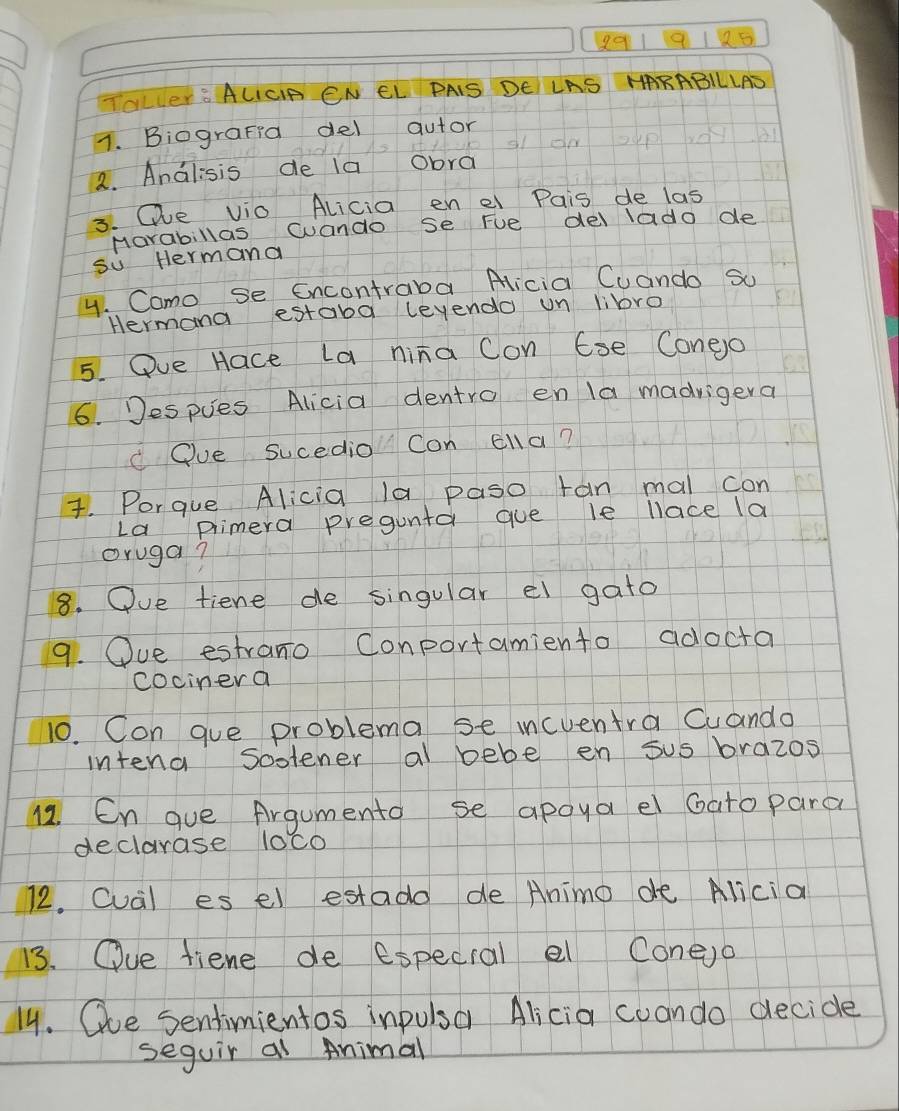 29 | 9 | 25
Taller: ALICIA EN EL PAIS DE LAS MARABILLAS
1. Biografia del autor
2. Análisis de la Obra
3. Que vio Alicia en el Pais de las
Marabillas Cuando se Fue del lado de
su Hermana
4. Como se Encontraba Alicia Cuando su
Hermana estaba leyendo un libro
5. Que Hace La niña Con Ese Conejo
6. Despúes Alicia dentro en la madrigera
¿ Que sucedio Con Ella?
7. Porque Alicia la paso tan mal con
La pimera pregunta que le llace la
oruga?
8. Que tiene de singular el gato
9. Que estraño Conportamiento adocta
cocinera
10. Con que problema se incuentra Cuando
intena Sootener al bebe en sus brazos
12. En que Argumento se apoya el Gato para
declarase loco
12. Cuál es el estado de Animo de Alicia
13. Que tiene de Especial el Conejo
14. Que Sentimientos inpulsa Alicia cuando decide
seguir al Animal